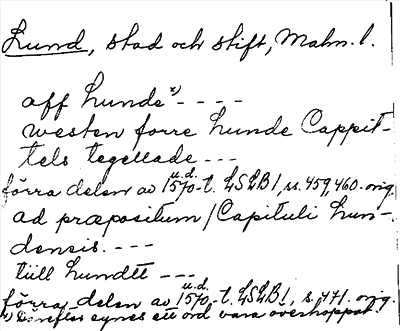 Lund, stad och stift, Malm. l.
aff Lunde x) - - - -
westen forre Lunde Cappit-
tels tegellade - - -
u.d.
förra delen av 1570-t. LSLB1, ss. 459, 460. orig.
ad præpositum / Capituli Lun-
densis. - - -
till Lundtt - - -
u.d.
förra delen av 1570-t. LSLB1, s. 471. orig.
x) Därefter synes ett ord vara överhoppat!